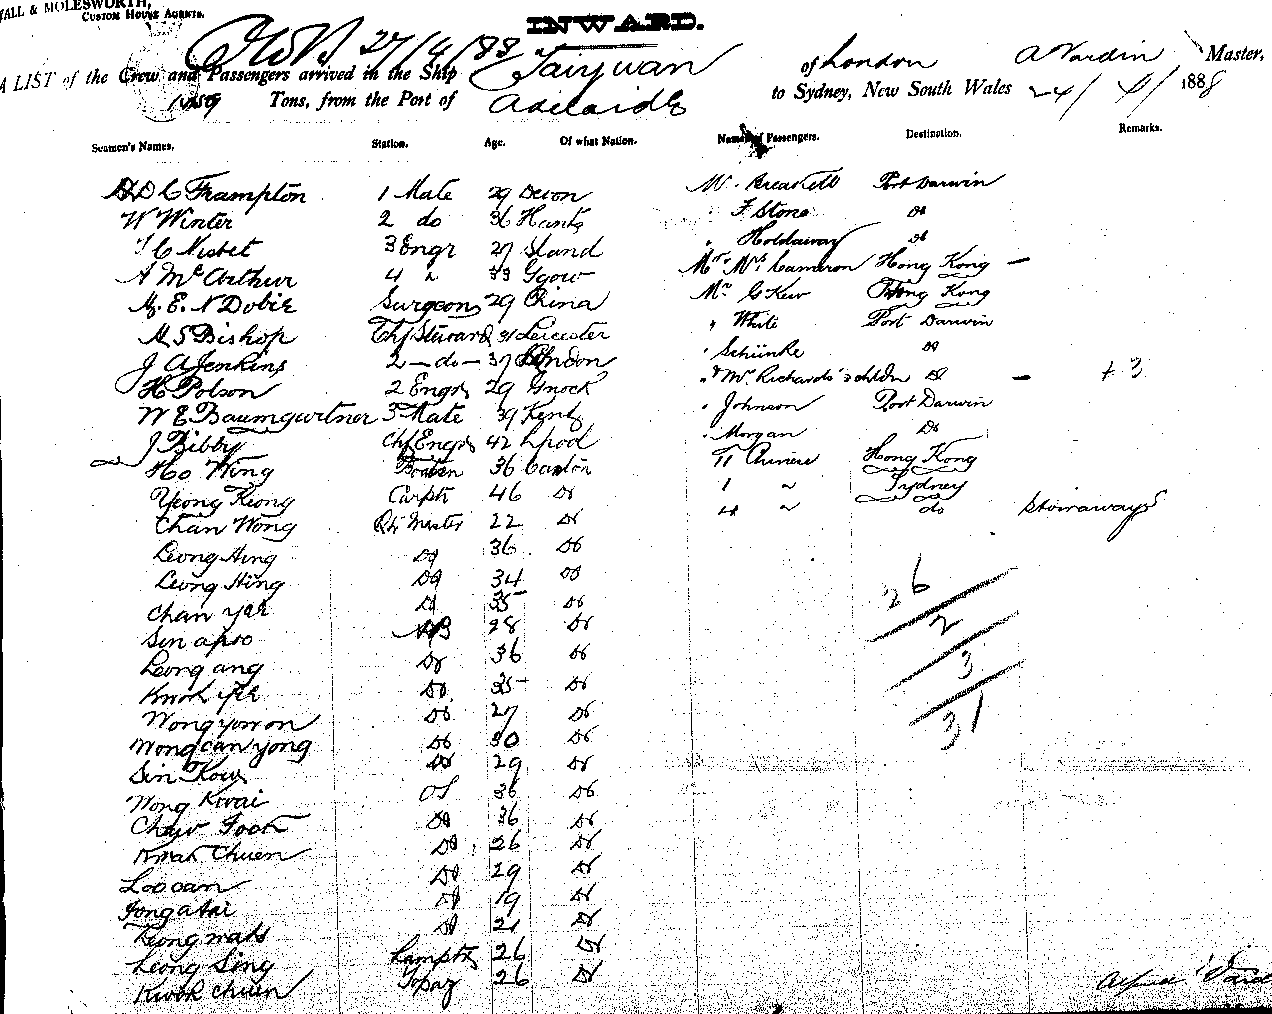 MOLESWORTH,
CUSTOM HOUSE AGENTS.
INWARD.
27/4/88
A LIST of the Crew and Passengers arrived in the Ship Taiyuan of London A Nardin Master,
Tons, from the Port of Adelaide to Sydney, New South Wales 24/4/1888
Seamen's Names. Station. Age. Of what Nation. Names of Passengers. Destination. Remarks.
H D C Frampton 1 Mate 29 Devon Port Darwin
W Winter 2 do 36 Hants F Stone Do
T C Nisbet 3 Engr 27 Holdaway Do
A McArthur 4 " 33 Ggow Mr Mrs Cameron Hong Kong —
E N Dobie Surgeon 29 China Mr G Kew Hong Kong
A S Bishop Chf Steward 31 Leicester " White Port Darwin
J A Jenkins 2 — do — 37 London Schünke Do
H Polson 2 Engr 29 Gnock Mrs Richards' 3 childn Do — + 3
W E Baumgartner 3 Mate 39 Kent Johnson Port Darwin
J Bibby Chf Engr 42 Lpool Morgan Do
Ho Wing 36 Canton 11 Chinese Hong Kong
Yeong Keong Carptr 46 Do 1 " Sydney
Chan Wong Qtr Master 22 Do 4 " do Stowaways
Leong Hing Do 36 Do
Leong Hing Do 34 Do
Chan Yek Do 35 Do
Sin apoo AB 28 Do
Leong ang Do 36 Do
Kwok Yek Do 35 Do
Wong yow on Do 27 Do
Wong can yong Do 30 Do
Sin Kow Do 29 Do
Wong Kwai OS 36 Do
Chow Fook Do 36 Do
Kwak Chuen Do 26 Do
Loo can Do 29 Do
Fong a tai Do 19 Do
Leong mats Do 21 Do
Leong Sing Lamptr 26 Do
Kwok Chuen Topaz 26 Do
26
2
3
31
Alfred